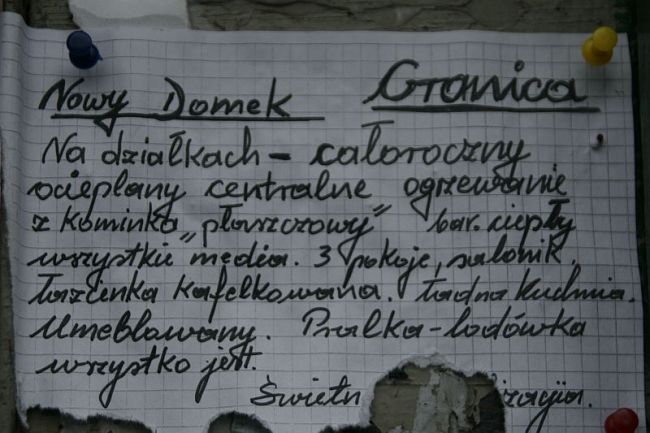 Nowy Domek Granica
Na działkach - całoroczny
ocieplany centralne ogrzewanie
z kominka „płaszczowy” bar. ciepły
wszystkie media. 3 pokoje, salonik.
Łazienka kafelkowana. Ładna kuchnia.
Umeblowany. Pralka-lodówka
wszystko jest.